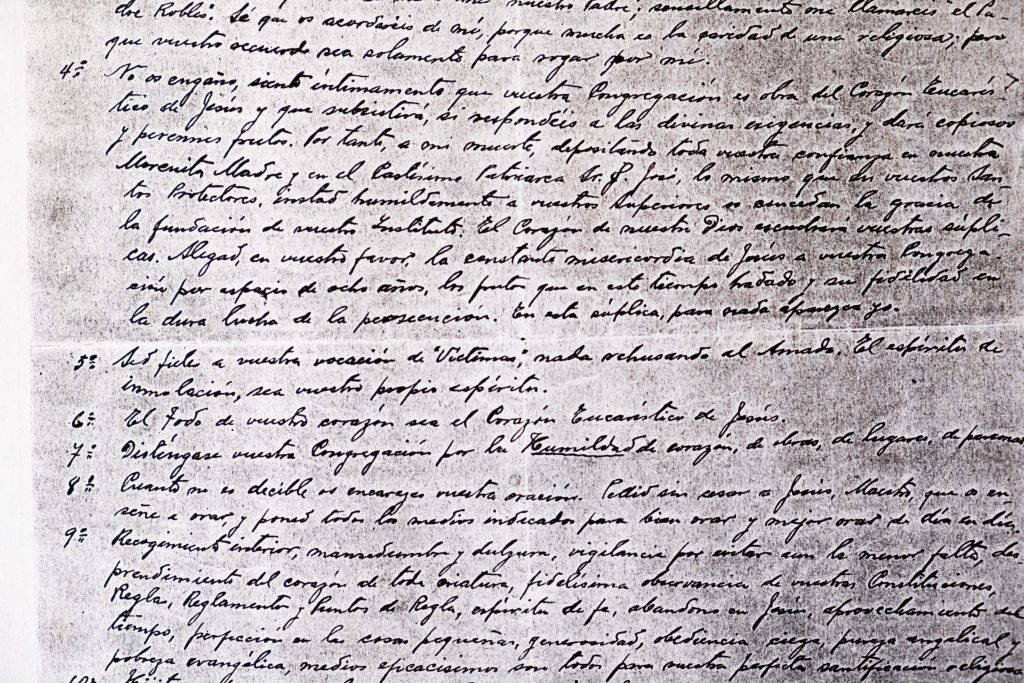 dre Robles". Sé que os acordaréis de mí, porque mucha es la caridad de una religiosa; pero
que vuestro recuerdo sea solamente para rogar por mí.
4º No os engaño, siento íntimamente que vuestra Congregación es obra del Corazón Eucarís-
tico de Jesús y que subsistirá, si respondéis a las divinas exigencias, y dará copiosos
y perennes frutos. Por tanto, a mi muerte, depositando toda vuestra confianza en nuestra
Morenita Madre y en el Castísimo Patriarca Sr. S. José, lo mismo que en vuestros San-
tos Protectores, instad humildemente a vuestros Superiores os concedan la gracia de
la fundación de vuestro Instituto. El Corazón de nuestro Dios escuchará vuestras súpli-
cas. Alegad, en vuestro favor, la constante misericordia de Jesús a vuestra Congrega-
ción por espacio de ocho años, los frutos que en este tiempo ha dado y su fidelidad en
la dura lucha de la persecución. En esta súplica, para nada aparezca yo.
5º Sed fieles a vuestra vocación de "Víctimas", nada rehusando al Amado. El espíritu de
inmolación, sea vuestro propio espíritu.
6º El Todo de vuestro corazón sea el Corazón Eucarístico de Jesús.
7º Distíngase vuestra Congregación por la Humildad de corazón, de obras, de lugares, de personas
8º Cuanto no es decible os encarezco vuestra oración. Pedid sin cesar a Jesús, Maestro, que os en-
señe a orar y poned todos los medios indicados para bien orar y mejor orar de día en día.
9º Recogimiento interior, mansedumbre y dulzura, vigilancia por evitar aun la menor falta, des-
prendimiento del corazón de toda criatura, fidelísima observancia de vuestras Constituciones,
Regla, Reglamento y Puntos de Regla, espíritu de fe, abandono en Jesús, aprovechamiento del
tiempo, perfección en las cosas pequeñas, generosidad, obediencia ciega, pureza angelical y
pobreza evangélica, medios eficacísimos son todos para vuestra perfecta santificación religiosa